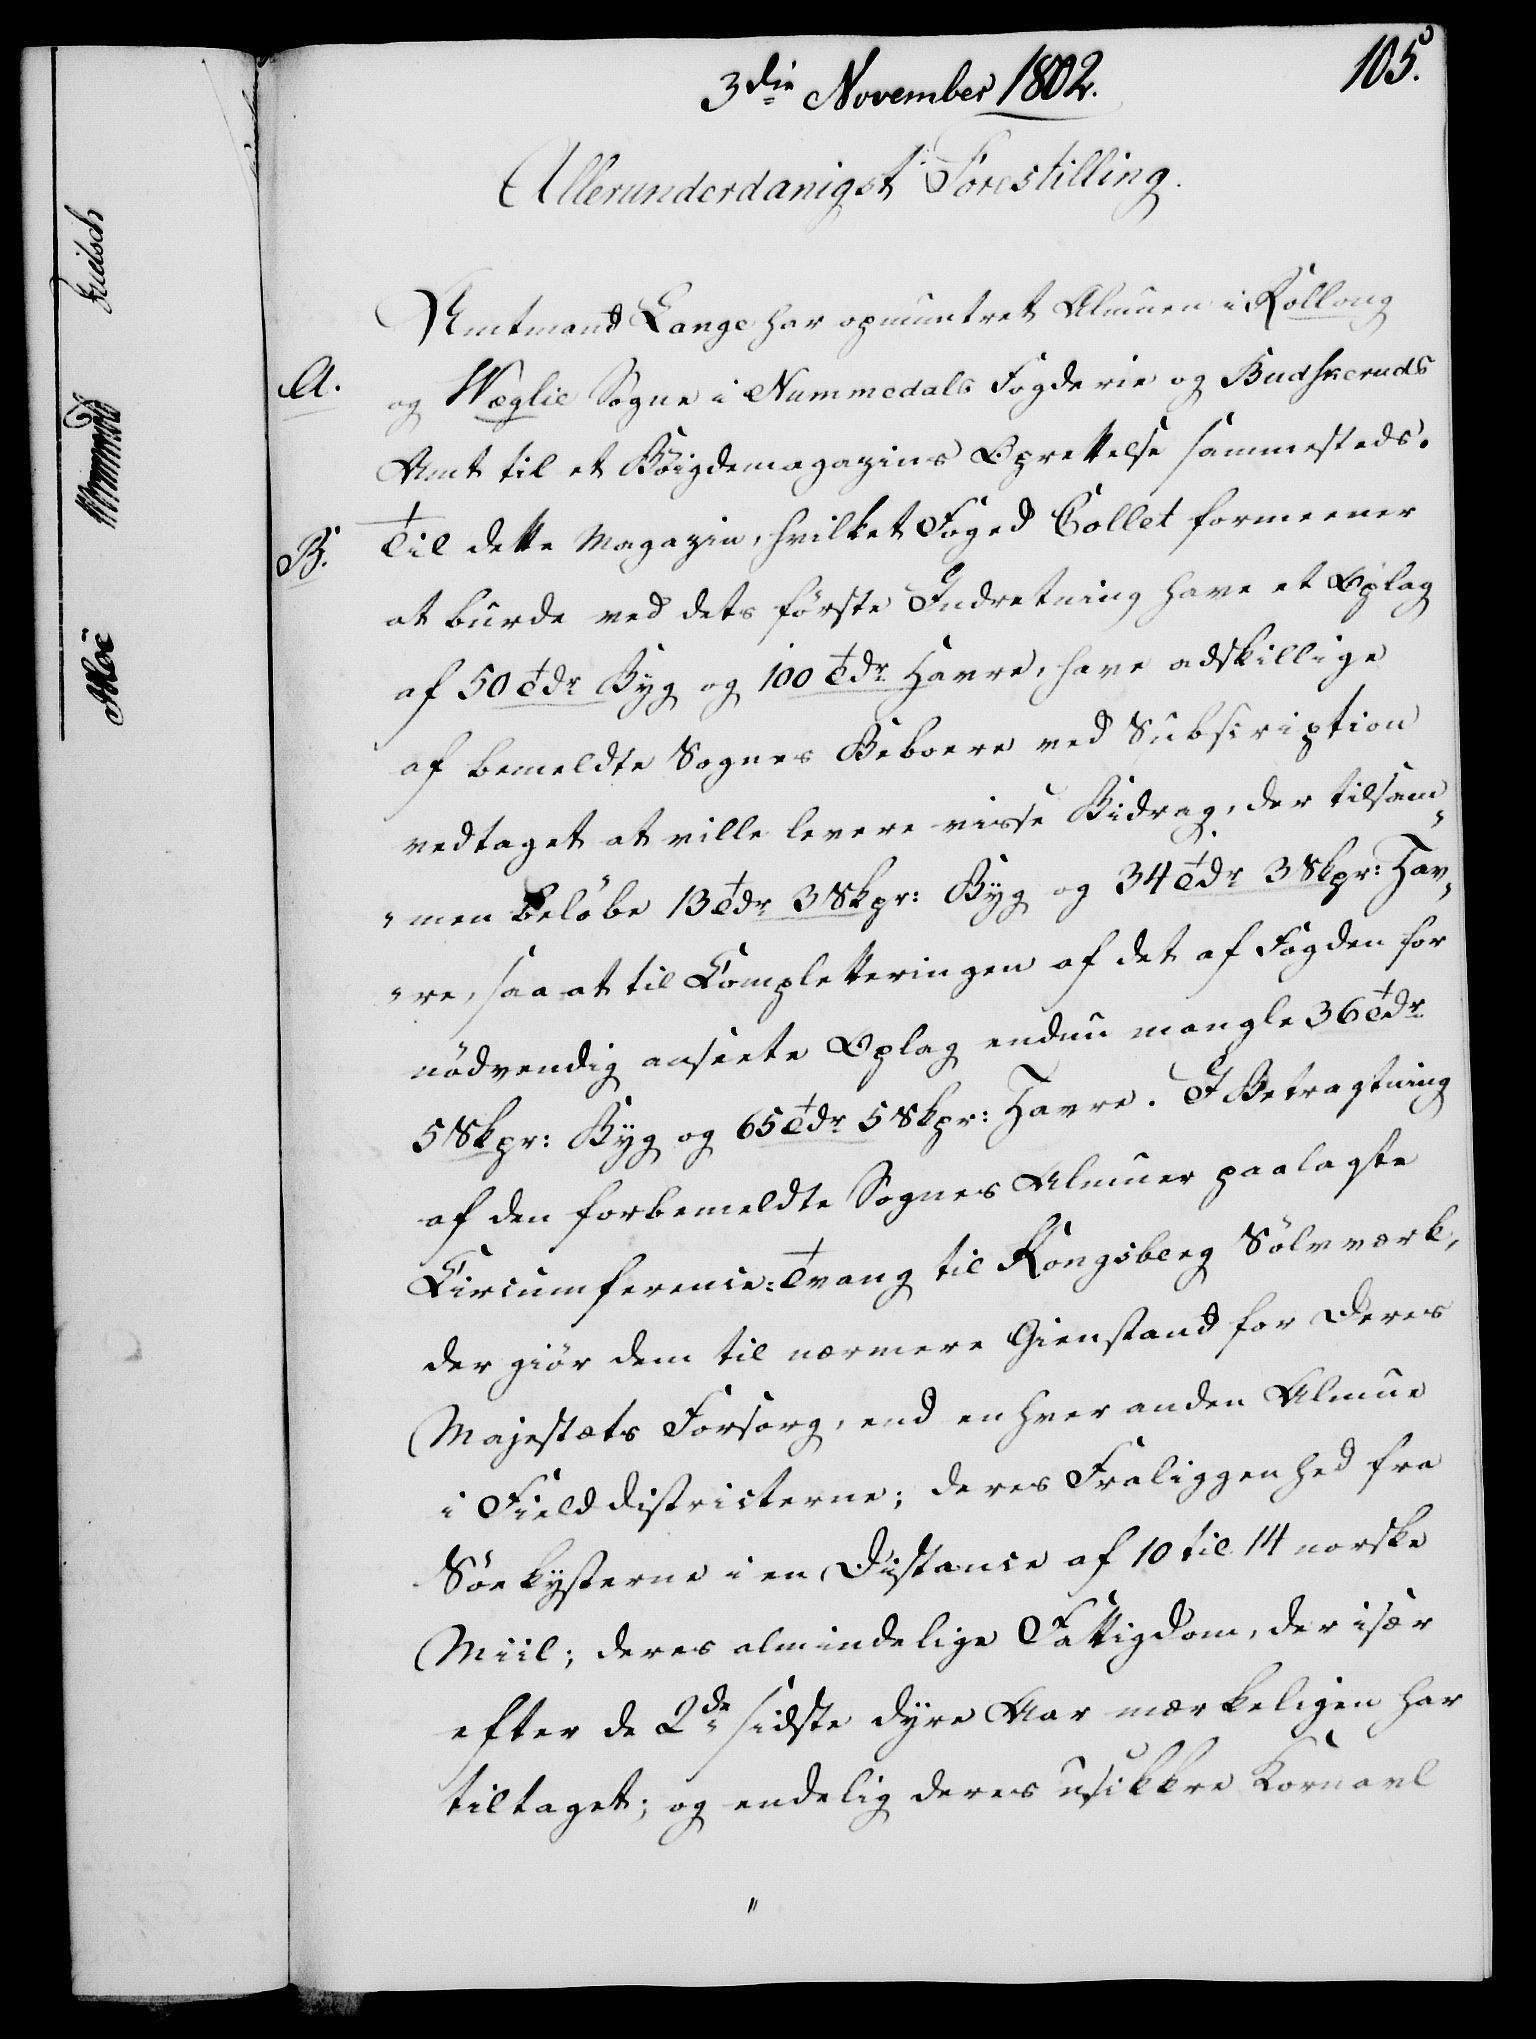 3die November 1802.
105.
Allerunderdanigst Forestilling.
Amtmand Lange har opmuntret Almuen i Rollong
A.
og Weglie Sogne i Nummedals Fogderie og Budskeruds
Amt til et Bøigdemagazins Oprettelse sammesteds.
B.
Til dette Magazin, hvilket Foged Collet formeener
at burde ved dets første Indretning have et Oplag
af 50 Tdr Byg og 100 Tdr Havre, have adskillige
af bemeldte Sognes Beboere ved Subscription
vedtaget at ville levere visse Bidrag, der tilsam„
„men beløbe 13 Tdr 3 Skpr: Byg og 34 Tdr 3 Skpr: Hav„
„re, saa at til Completteringen af det af Fogden for
nødvendig ansete Oplag endnu mangle 36 Tdr
5 Skpr: Byg og 65 Tdr 5 Skpr: Havre. I Betragtning
af den forbemeldte Sognes Almuer paalagte
Circumference-Tvang til Kongsberg Sølvværk,
der giør dem til nærmere Gienstand for Deres
Majestæts Forsorg, end enhver anden Almue
i Fielddistricterne; deres Fraliggenhed fra
Søekysterne i en Distance af 10 til 14 norske
Miil; deres almindelige Fattigdom, der især
efter de 2de sidste dyre Aar mærkeligen har
tiltaget; og endelig deres usikkre Kornavl
"
Fritsch
Wormskiold
Moe